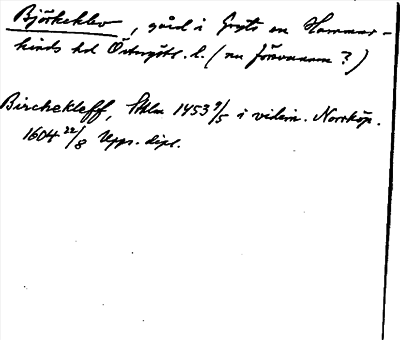 Björkeklev, gård i Gryts sn Hammar-
kinds hd Östergötl. l. (nu försvunnen?)
Birchekleff, Sthlm 1453 9/5 i vidim. Norrköp.
1604 22/8 Upps. dipl.